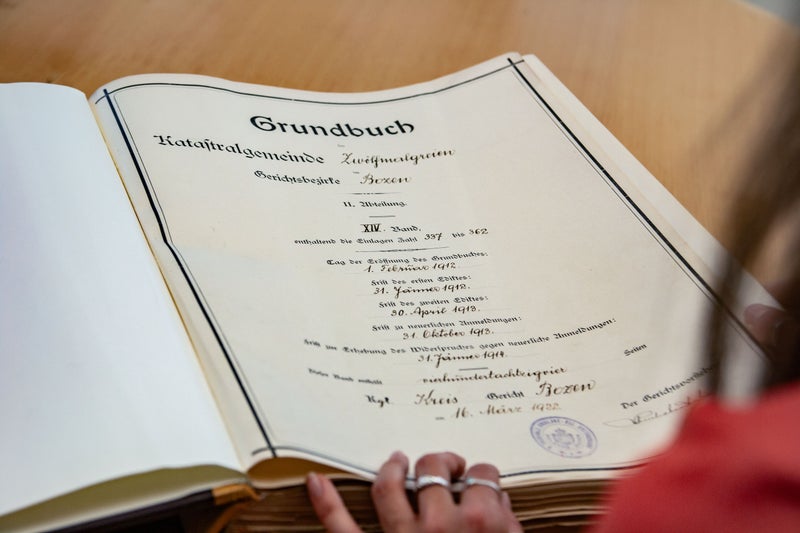 Grundbuch
der
Katastralgemeinde Zwölfmalgreien
Gerichtsbezirke Bozen
II. Abteilung.
XIV. Band,
enthaltend die Einlagen Zahl 337 bis 362
Tag der Eröffnung des Grundbuches:
1. Februar 1912.
Frist des ersten Ediktes:
31. Jänner 1912.
Frist des zweiten Ediktes:
30. April 1913.
Frist zu neuerlichen Anmeldungen:
31. Oktober 1913.
Frist zur Erhebung des Widerspruches gegen neuerliche Anmeldungen:
31. Jänner 1914.
Dieser Band enthält vierhundertachtzigvier Seiten
Kgl. Kreis Gericht Bozen
am 16. März 1922
Der Gerichtsvorsteher